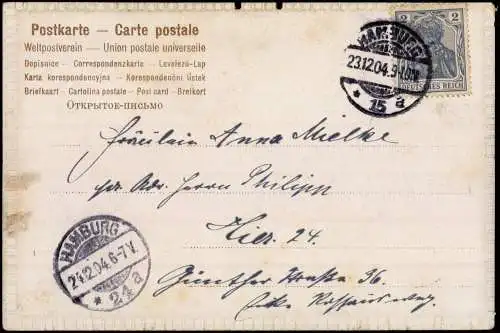 Postkarte – Carte postale
Weltpostverein – Union postale universelle
Dopisnice – Correspondenzkarte – Levelező-Lap
Karta korespondencyjna – Korespondenční lístek
Briefkaart – Cartolina postale – Post card – Brevkort
Открытое-письмо
HAMBURG
23.12.04.
* 15 a
2 2
DEUTSCHES REICH
Fräulein Anna Mielke
pr. Adr. Herrn Philipp
Hier. 24.
Günther Straße 36.
HAMBURG
24.12.04. 6-7 V.
* 2 * a